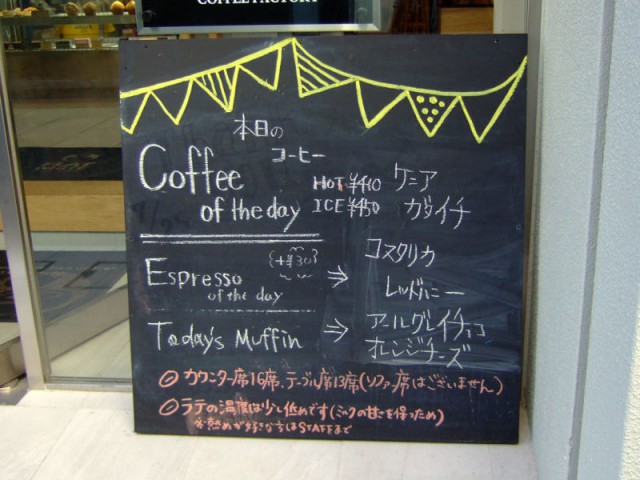 COFFEE FACTORY
本日の
コーヒー
Coffee of the day
HOT ¥410 ケニア
ICE ¥450 ガタイチ
Espresso of the day
(+¥30) ⇒ コスタリカ
レッドハニー
Today's Muffin ⇒ アールグレイチョコ
オレンジチーズ
① カウンター席16席、テーブル席13席(ソファ席はございません)
② ラテの温度は少し低めです(ミルクの甘さを保つため)
※熱めが好きな方はSTAFFまで